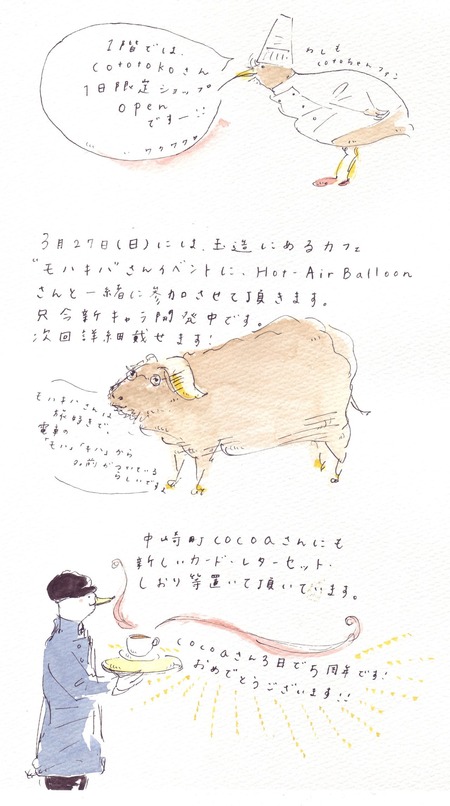 1階では、
cotoToKoさん
1日限定ショップ
open
ですー!!
ワクワク♥
わしも
cotoちゃんファン
3月27日(日)には、玉造にあるカフェ
"モハキハ"さんイベントに、Hot-Air Balloon
さんと一緒に参加させて頂きます。
只今新キャラ開発中です。
次回詳細載せます!
モハキハさんは
旅好きで、
電車の
「モハ」「キハ」から
名前がついている
らしいです。
中崎町cocoaさんにも
新しいカード・レターセット・
しおり等置いて頂いています。
cocoaさん3日で5周年です!
おめでとうございます!!